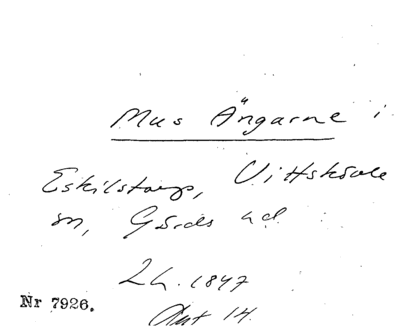 Mus Ängarne i
Eskilstorp, Vittskövle
sn, Gärds hd
2 h. 1847
Nr 7926.
Akt 14